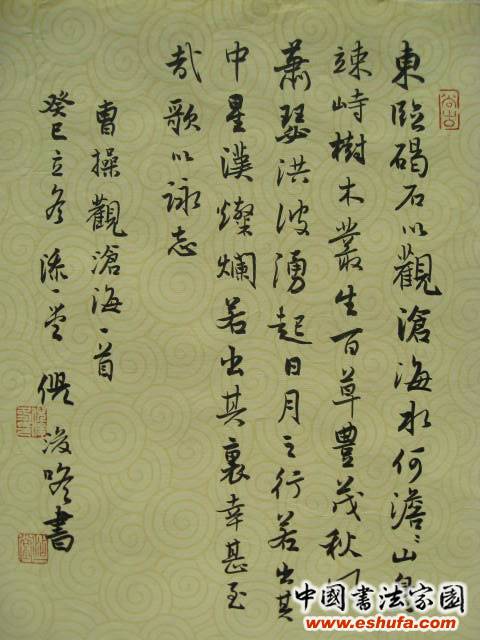 尚古
東臨碣石以觀滄海水何澹〻山島
竦峙樹木叢生百草豐茂秋風
蕭瑟洪波湧起日月之行若出其
中星漢燦爛若出其裏幸甚至
哉歌以詠志
曹操觀滄海一首
癸巳立冬 書
中國書法家園
www.eshufa.com